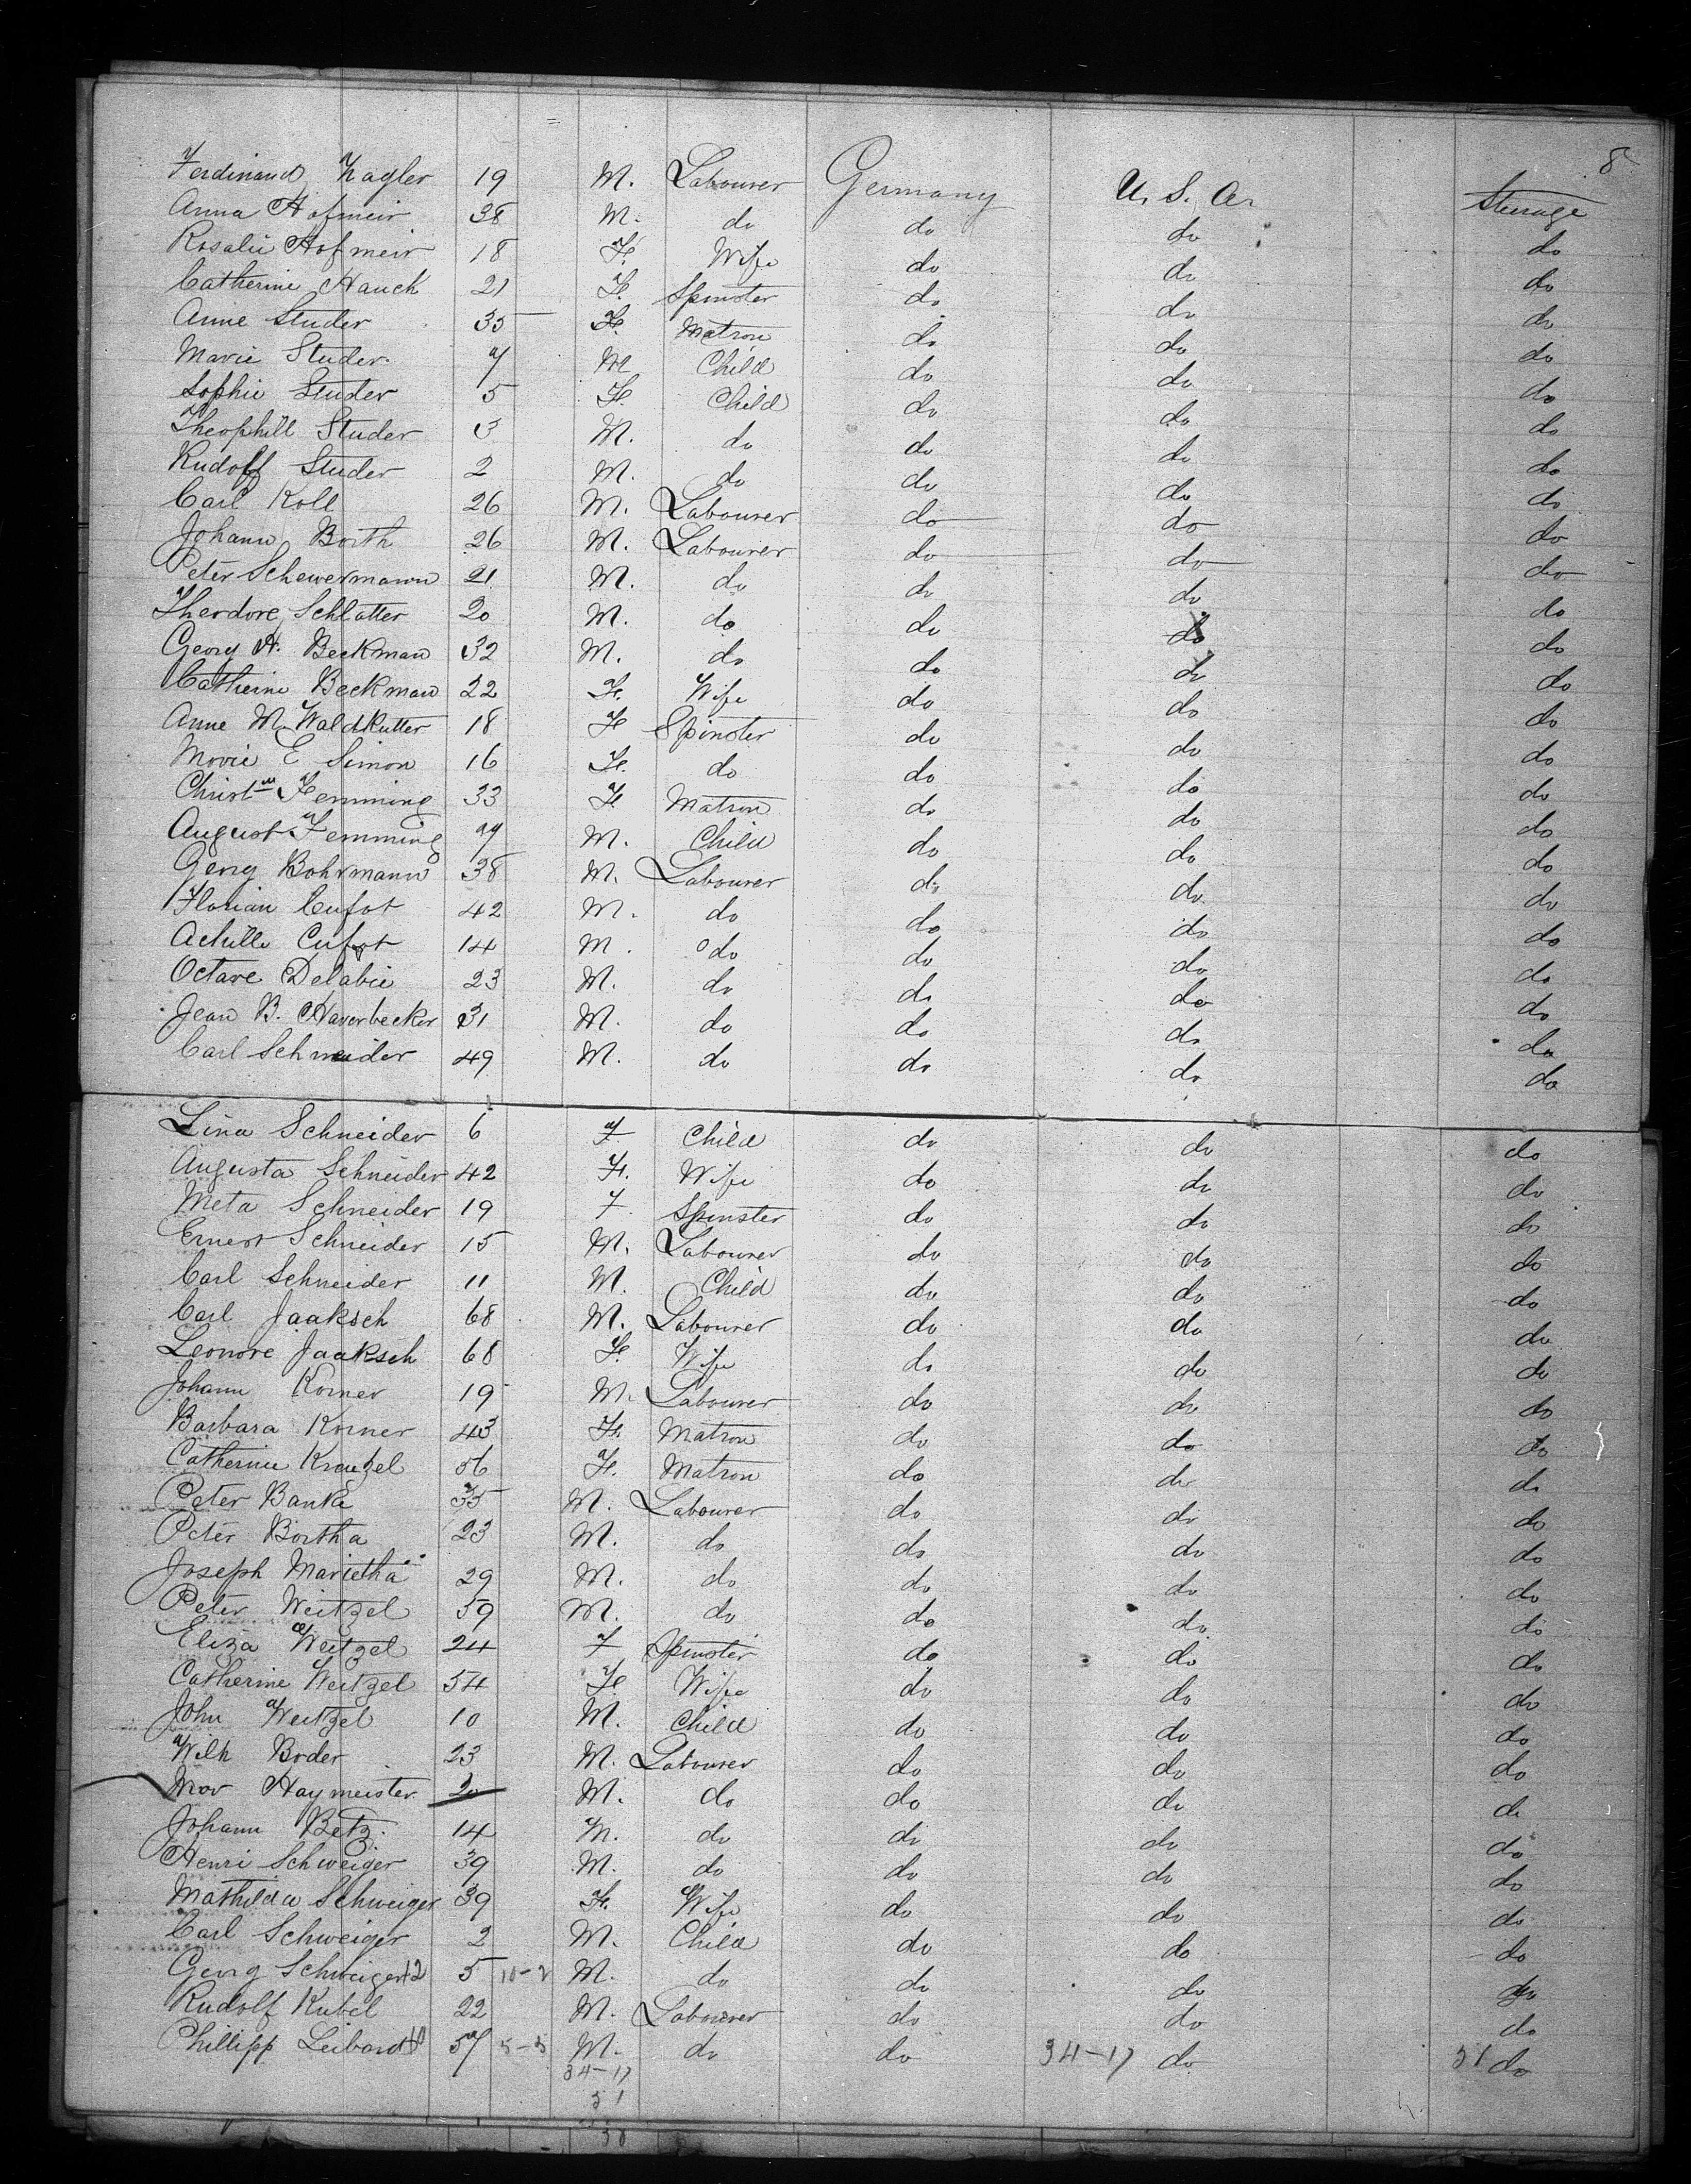 8
Ferdinand Zagler 19 M. Labourer Germany U. S. A. Steerage
Anna Hofmeir 38 M. do do do do
Rosalie Hofmeir 18 F. Wife do do do
Catherine Hauch 21 F. Spinster do do do
Anne Studer 35 F. Matron do do do
Marie Studer 7 M Child do do do
Sophie Studer 5 F. Child do do do
Theophill Studer 3 M. do do do do
Rudolf Studer 2 M. do do do do
Carl Koll 26 M. Labourer do do do
Johann Borth 26 M. Labourer do do do
Peter Schewermann 21 M. do do do do
Theodore Schlatter 20 M. do do do do
Georg H. Beekman 32 M. do do do do
Catherine Beekman 22 F. Wife do do do
Anne M. Waldkutter 18 F Spinster do do do
Movie E Simon 16 F. do do do do
Christ Femming 33 F Matron do do do
August Femming 9 M. Child do do do
Georg Bohrmann 38 M. Labourer do do do
Florian Cufot 42 M. do do do do
Achille Cufot 14 M. do do do do
Octave Delabie 23 M. do do do do
Jean B. Haverbecker 31 M. do do do do
Carl Schneider 49 M. do do do do
Lina Schneider 6 F Child do do do
Augusta Schneider 42 F. Wife do do do
Meta Schneider 19 F Spinster do do do
Ernest Schneider 15 M. Labourer do do do
Carl Schneider 11 M. Child do do do
Carl Jaaksch 68 M. Labourer do do do
Leonore Jaaksch 68 F. Wife do do do
Johann Korner 19 M. Labourer do do do
Barbara Korner 43 F. Matron do do do
Catherine Kreutzel 56 F. Matron do do do
Peter Banka 35 M. Labourer do do do
Peter Bortha 23 M. do do do do
Joseph Marietha 29 M. do do do do
Peter Weitzel 59 M. do do do do
Eliza Weitzel 24 F Spinster do do do
Catherine Weitzel 54 F. Wife do do do
John Weitzel 10 M. Child do do do
Wilh Broder 23 M. Labourer do do do
Mor Haymeister 20 M. do do do do
Johann Betz. 14 M. do do do do
Henri Schweiger 39 M. do do do do
Mathilda Schweiger 39 F. Wife do do do
Carl Schweiger 2 M. Child do do do
Georg Schweiger 12 5 10-2 M. do do do do
Rudolf Kubel 22 M. Labourer do do do
Phillipp Leibardt 57 5-5 M. do do 34-17 do 51 do
34-17
51